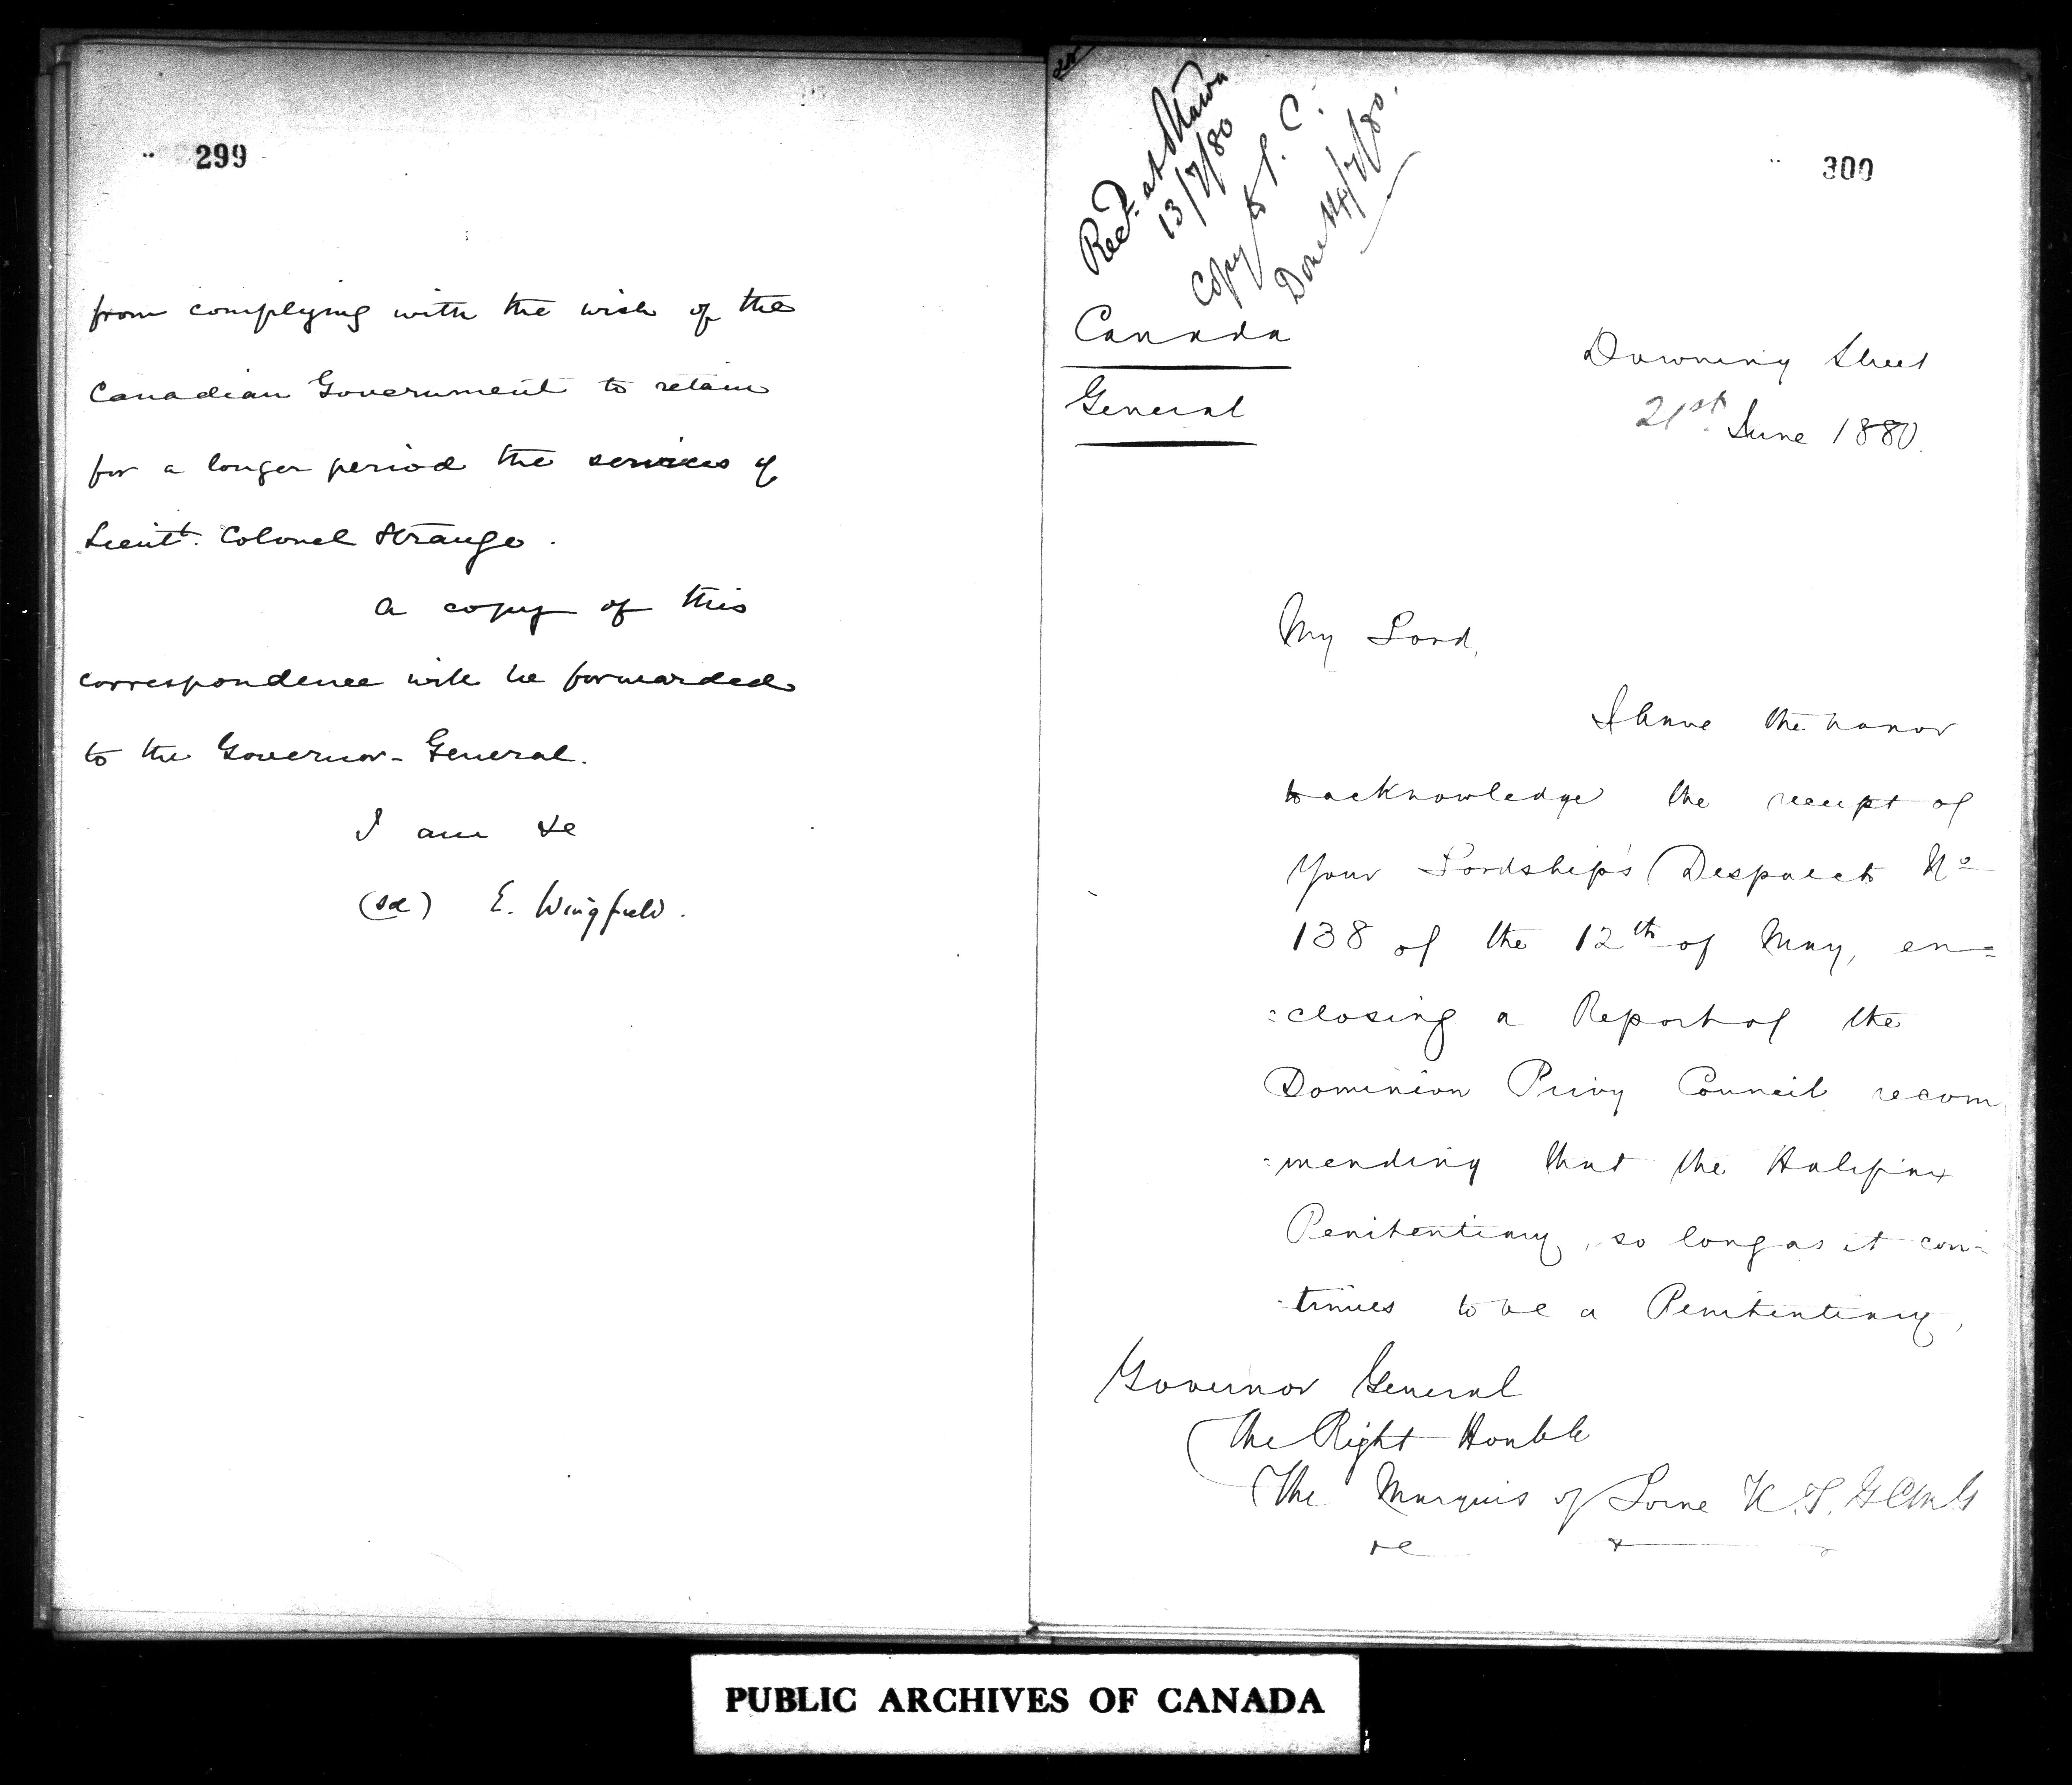 299
from complying with the wish of the
Canadian Government to retain
for a longer period the services of
Lieutt. Colonel Strange.
A copy of this
correspondence will be forwarded
to the Governor-General.
I am &c
(sd) E. Wingfield.
300
Recd. at Ottawa
13/7/80
Copy to P. C.
Done 14/7/80.
Canada
General
Downing Street
21st. June 1880.
My Lord,
I have the honor
to acknowledge the receipt of
Your Lordship's Despatch No
138 of the 12th of May, en=
=closing a Report of the
Dominion Privy Council recom
-mending that the Halifax
Penitentiary, so long as it con-
-tinues to be a Penitentiary,
Governor General
The Right Honble
The Marquis of Lorne K.T. GCMG
&c &
PUBLIC ARCHIVES OF CANADA